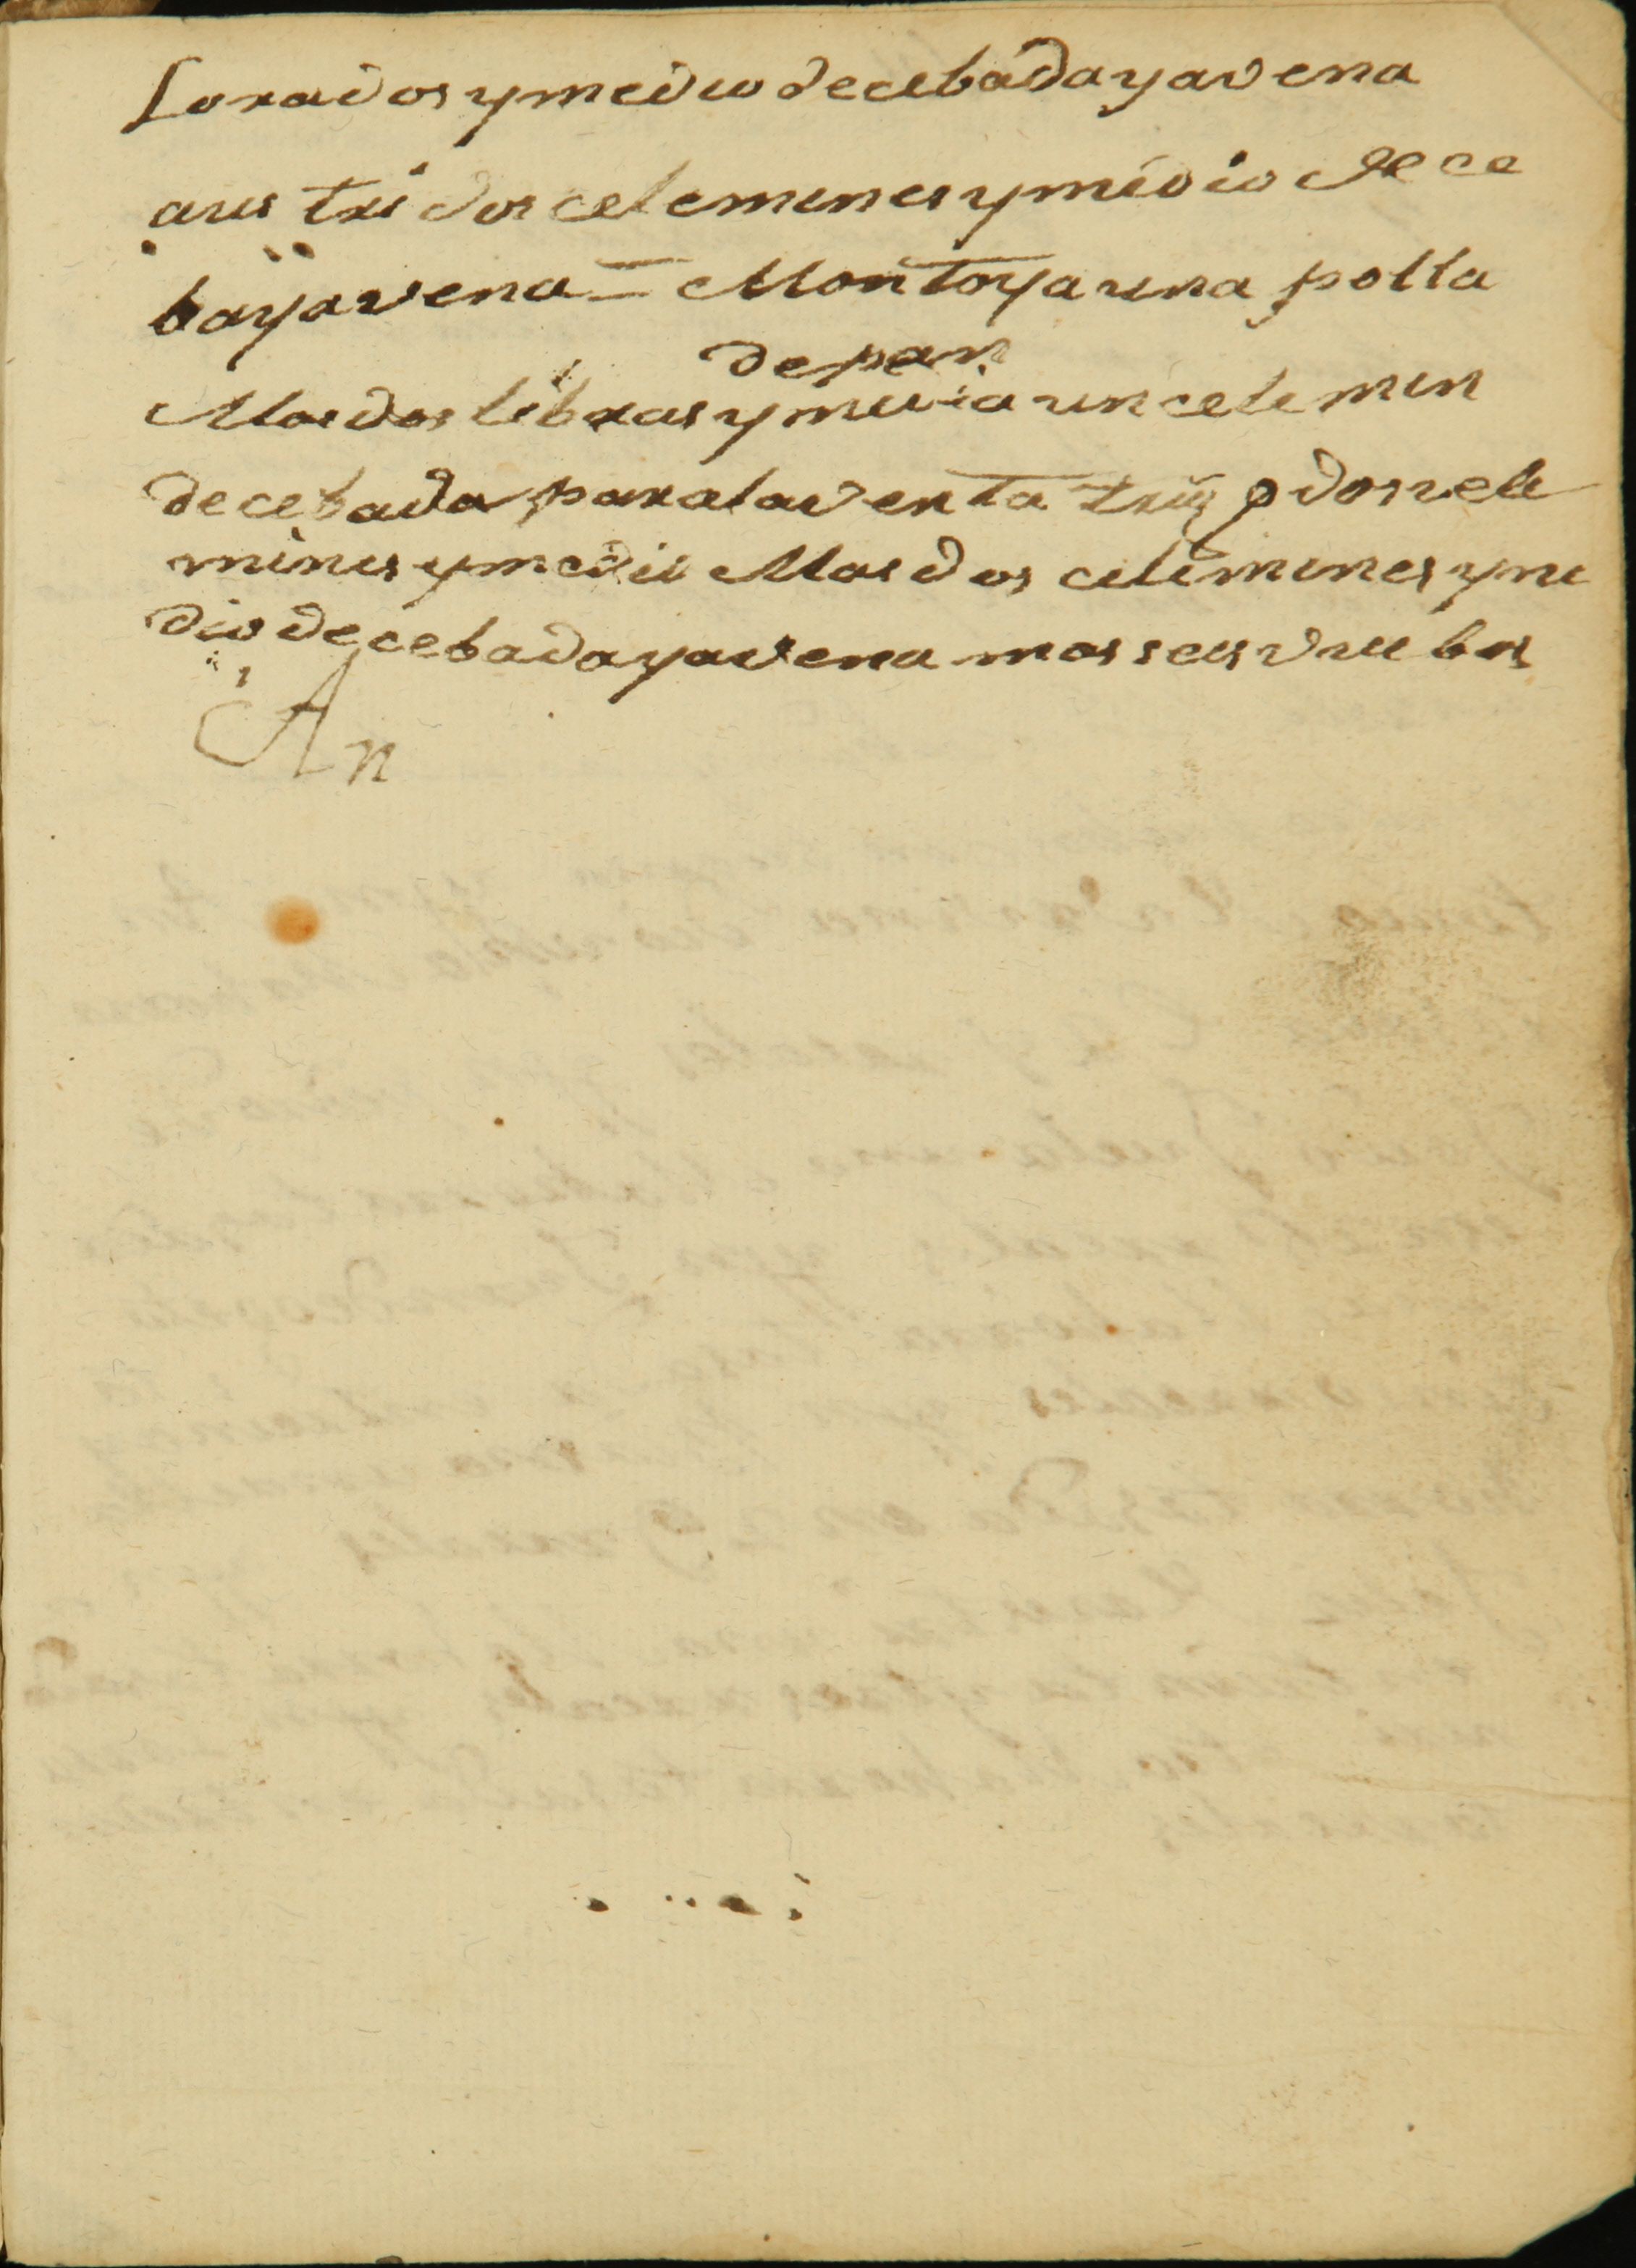 Lora dos y medio de cebada y avena
aus tri dos celemines y midio de ce
bayavena — Montoya una polla
de pan
Mas dos libras y media un celemin
de cebada para la venta dos cele
mines y medio Mas dos celemines y me
dio de cebada y avena mas seis
An